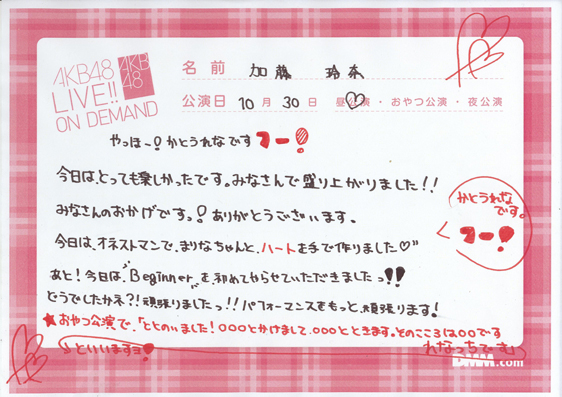 AKB48
LIVE!!
ON DEMAND
AKB
48
名前 加藤 玲奈
公演日 10月30日 昼公演・おやつ公演・夜公演
やっほ～!かとうれなです フー!
今日は、とっても楽しかったです。みなさんで盛り上がりました!!
みなさんのおかげです。!ありがとうございます。
今日は、オネストマンで、まりなちゃんと、ハートを手で作りました♡"
あと!今日は、"Beginner"を初めてやらせていただきましたっ!!
どうでしたかネ?!頑張りましたっ!!パフォーマンスをもっと、頑張ります!
★おやつ公演で、「ととのいました!○○○とかけまして、○○○とときます。そのこころは○○です
れなっちです」
といいますョ!
かとうれな
です。
フー!
DMM.com